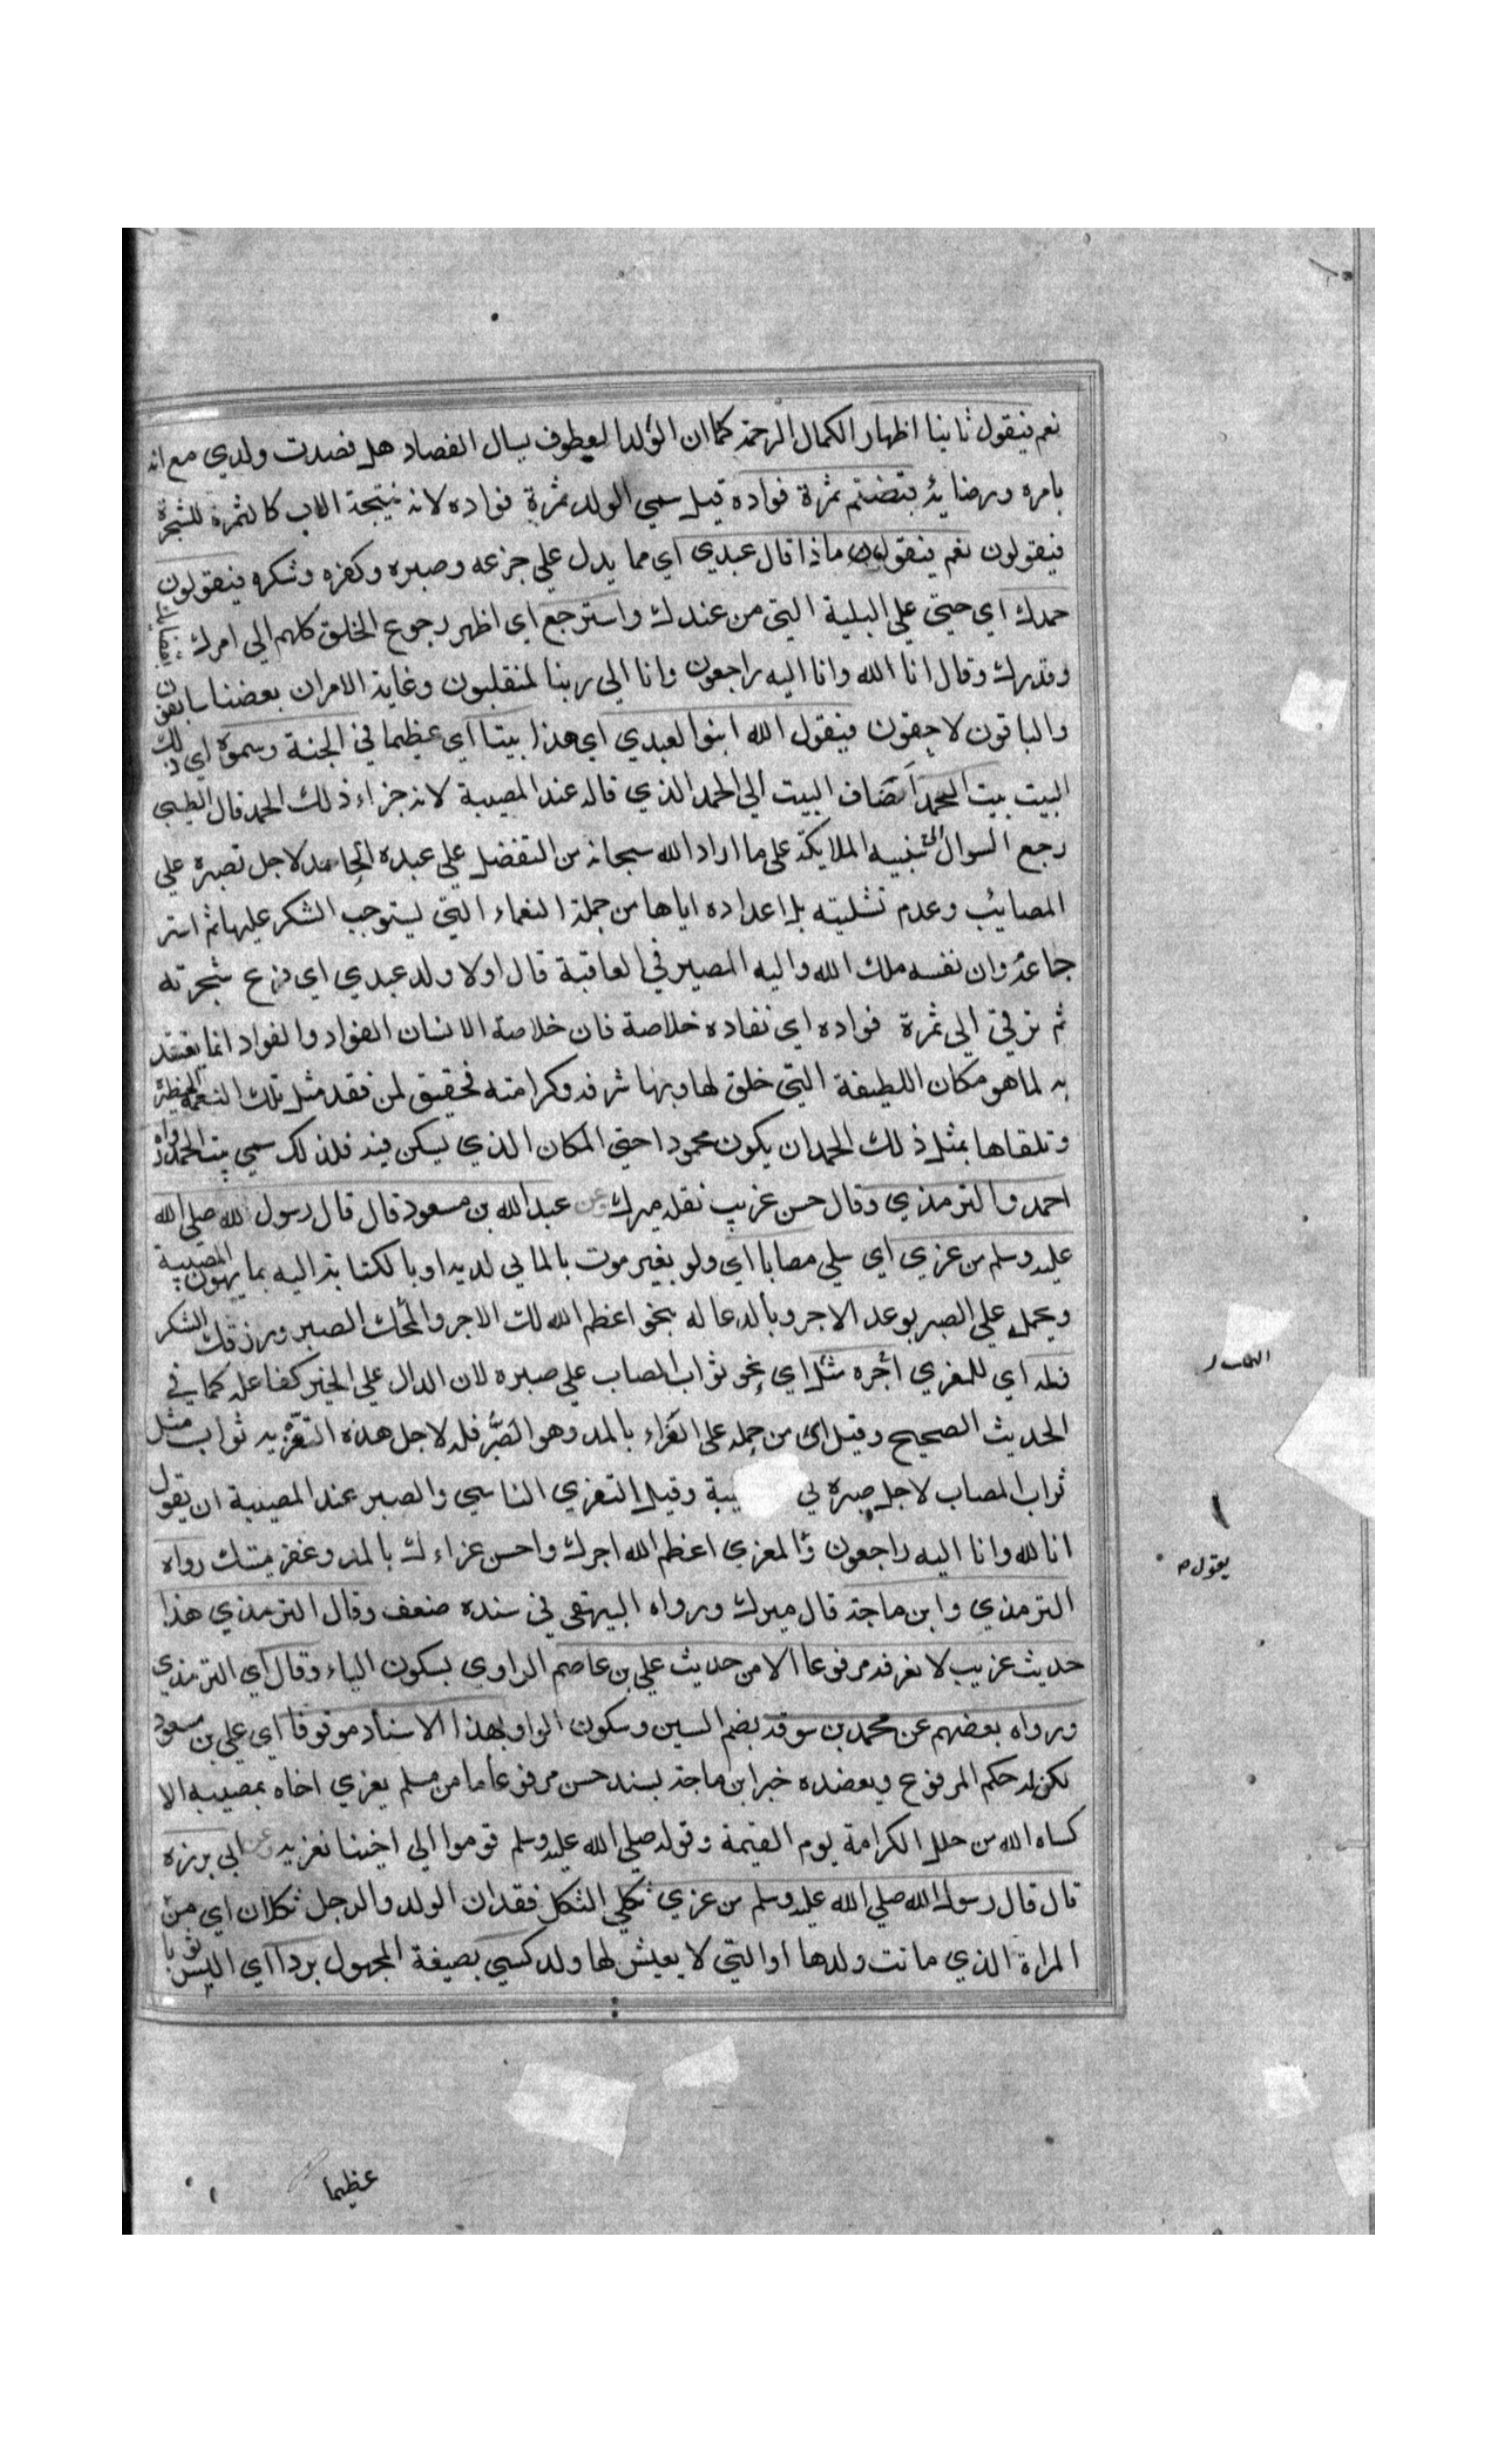 نعم فيقول ثانيا اظهار الكمال الرحمة كما ان الولد العطوف يسال الفصاد هل فصدت ولدي مع انه
بامره ورضايه قبضتم ثمرة فواده قيل سمي الولد ثمرة فواده لانه نتيجة الاب كالثمرة للشجرة
فيقولون نعم فيقول ماذا قال عبدي اي مما يدل علي جزعه وصبره وكفره وشكره فيقولون
حمدك اي حتي علي البلية التي من عندك واسترجع اي اظهر رجوع الخلق كلهم الي امرك
وقدرك وقال انا الله وانا اليه راجعون وانا الي ربنا لمنقلبون وغاية الامران بعضنا سابقون
والباقون لاحقون فيقول الله ابنوا لعبدي اي هذا بيتا اي عظيما في الجنة وسموه اي ذلك
البيت بيت الحمد اضاف البيت الي الحمد الذي قاله عند المصيبة لانه جزاء ذلك الحمد قال الطيبي
رجع السوال الي تنبيه الملايكة علي ما اراد الله سبحانه من التفضل علي عبده الحامد لاجل تصبره علي
المصائب وعدم تشليته بل اعداده اياها من جملة النعماء التي يستوجب الشكر عليها ثم استر
جاعه وان نفسه ملك الله واليه المصير في العاقبة قال اولا ولد عبدي اي فرع شجرته
ثم ترقي الي ثمرة فواده اي نفاده خلاصة فان خلاصة الانسان الفواد والفواد انما يعتقد
به لما هو مكان اللطيفة التي خلق لها وبها شرفه وكرامته فحقيق لمن فقد مثل تلك النعمة الخطيرة
وتلقاها بمثل ذلك الحمد ان يكون محمودا حتي المكان الذي يسكن فيه فلذلك سمي بيت الحمد رواه
احمد والترمذي وقال حسن غريب نقله ميرك وعن عبد الله بن مسعود قال قال رسول الله صلي الله
عليه وسلم من عزي اي سلي مصابا اي ولو بغير موت بالماتي لديه او بالكتابة اليه بما يهون المصيبة
ويحمل علي الصبر بوعد الاجر وبالدعا له بنحو اعظم الله لك الاجر والمحك الصبر ورزقك الشكر
فله اي للمعزي اجره مثل اي نحو ثواب المصاب علي صبره لان الدال علي الخير كفاعله كما في
الحديث الصحيح وقيل اي من حمله علي العزاء بالمد وهو الصبر فله لاجل هذه التعزية ثواب مثل
ثواب المصاب لاجل صبره في يبة وقيل التعزي التاسي والصبر عند المصيبة ان يقول
انا لله وانا اليه راجعون والمعزي اعظم الله اجرك واحسن عزاءك بالمد وغفر ميتك رواه
الترمذي وابن ماجة قال ميرك ورواه البيهقي في سنده ضعف وقال الترمذي هذا
حديث غريب لا نعرفه مرفوعا الا من حديث علي بن عاصم الراوي بسكون الياء وقال اي الترمذي
ورواه بعضهم عن محمد بن سوقه بضم السين وسكون الواو بهذا الاسناد موقوفا اي علي بن مسعود
لكن له حكم المرفوع ويعضده خبر ابن ماجة بسند حسن مرفوعا ما من مسلم يعزي اخاه بمصيبه الا
كساه الله من حلل الكرامة يوم القيمة وقوله صلي الله عليه وسلم قوموا الي اخينا نعزيه وعن ابي برزه
قال قال رسول الله صلي الله عليه وسلم من عزي ثكلي الثكل فقدان الولد والرجل ثكلان اي من
المراة الذي ماتت ولدها او التي لا يعيش لها ولد كسي بصيغة المجهول بردا اي البس ثوبا
يقول
عظيما